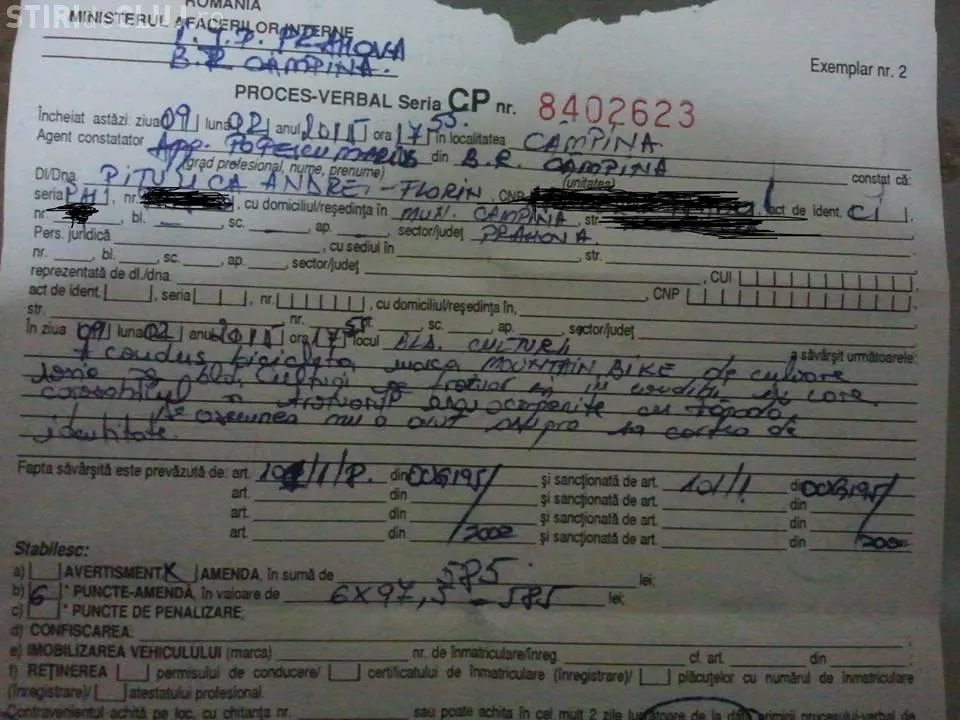 STIRI de CLUJ.ro
ROMÂNIA
MINISTERUL AFACERILOR INTERNE
I.P.J. PRAHOVA
B.R. CAMPINA.
Exemplar nr. 2
PROCES-VERBAL Seria CP nr. 8402623
Încheiat astăzi: ziua 09 luna 02 anul 2015 ora 17 55 în localitatea CAMPINA.
Agent constatator App. POPESCU MARIUS din B.R. CAMPINA
(grad profesional, nume, prenume) (unitatea) constat că:
Dl/Dna PITULICA ANDREI-FLORIN, CNP act de ident. CI,
seria PH, nr. , cu domiciliul/reşedinţa în MUN. CAMPINA, str.
nr. bl. , sc. , ap. , sector/judeţ PRAHOVA.
Pers. juridică , cu sediul în , str.
nr. , bl. , sc. , ap. , sector/judeţ , CUI
reprezentată de dl./dna. , CNP
act de ident. , seria , nr. , cu domiciliul/reşedinţa în,
str. nr. , sc. , ap. , sector/judeţ
În ziua 09 luna 02 anul 2015 ora 17 locul BLD. CULTURII a săvârşit următoarele:
A condus bicicleta marca MOUNTAIN BIKE de culoare
pe Bld. Culturii pe trotuar si in conditii in care
carosabilul si trotuarul erau acoperite cu zăpadă.
De asemenea nu a avut asupra sa cartea de
identitate.
Fapta săvârşită este prevăzută de: art. 101/1/ din OUG195/ şi sancţionată de art. 101/1 din OUG195/
art. din şi sancţionată de art. din
art. din şi sancţionată de art. din
art. din /2002 şi sancţionată de art. din /2002
Stabilesc:
a) AVERTISMENT X AMENDA, în sumă de 585 lei;
b) 6 * PUNCTE-AMENDĂ, în valoare de 6x97,5 = 585 lei;
c) * PUNCTE DE PENALIZARE;
d) CONFISCAREA:
e) IMOBILIZAREA VEHICULULUI (marca) nr. de înmatriculare/înreg. cf. art. din
f) REŢINEREA permisului de conducere/ certificatului de înmatriculare (înregistrare)/ plăcuţelor cu numărul de înmatriculare
(înregistrare)/ atestatului profesional.
Contravenientul achită pe loc, cu chitanţa nr. sau poate achita în cel mult 2 zile lucrătoare de la data primirii procesului-verbal de